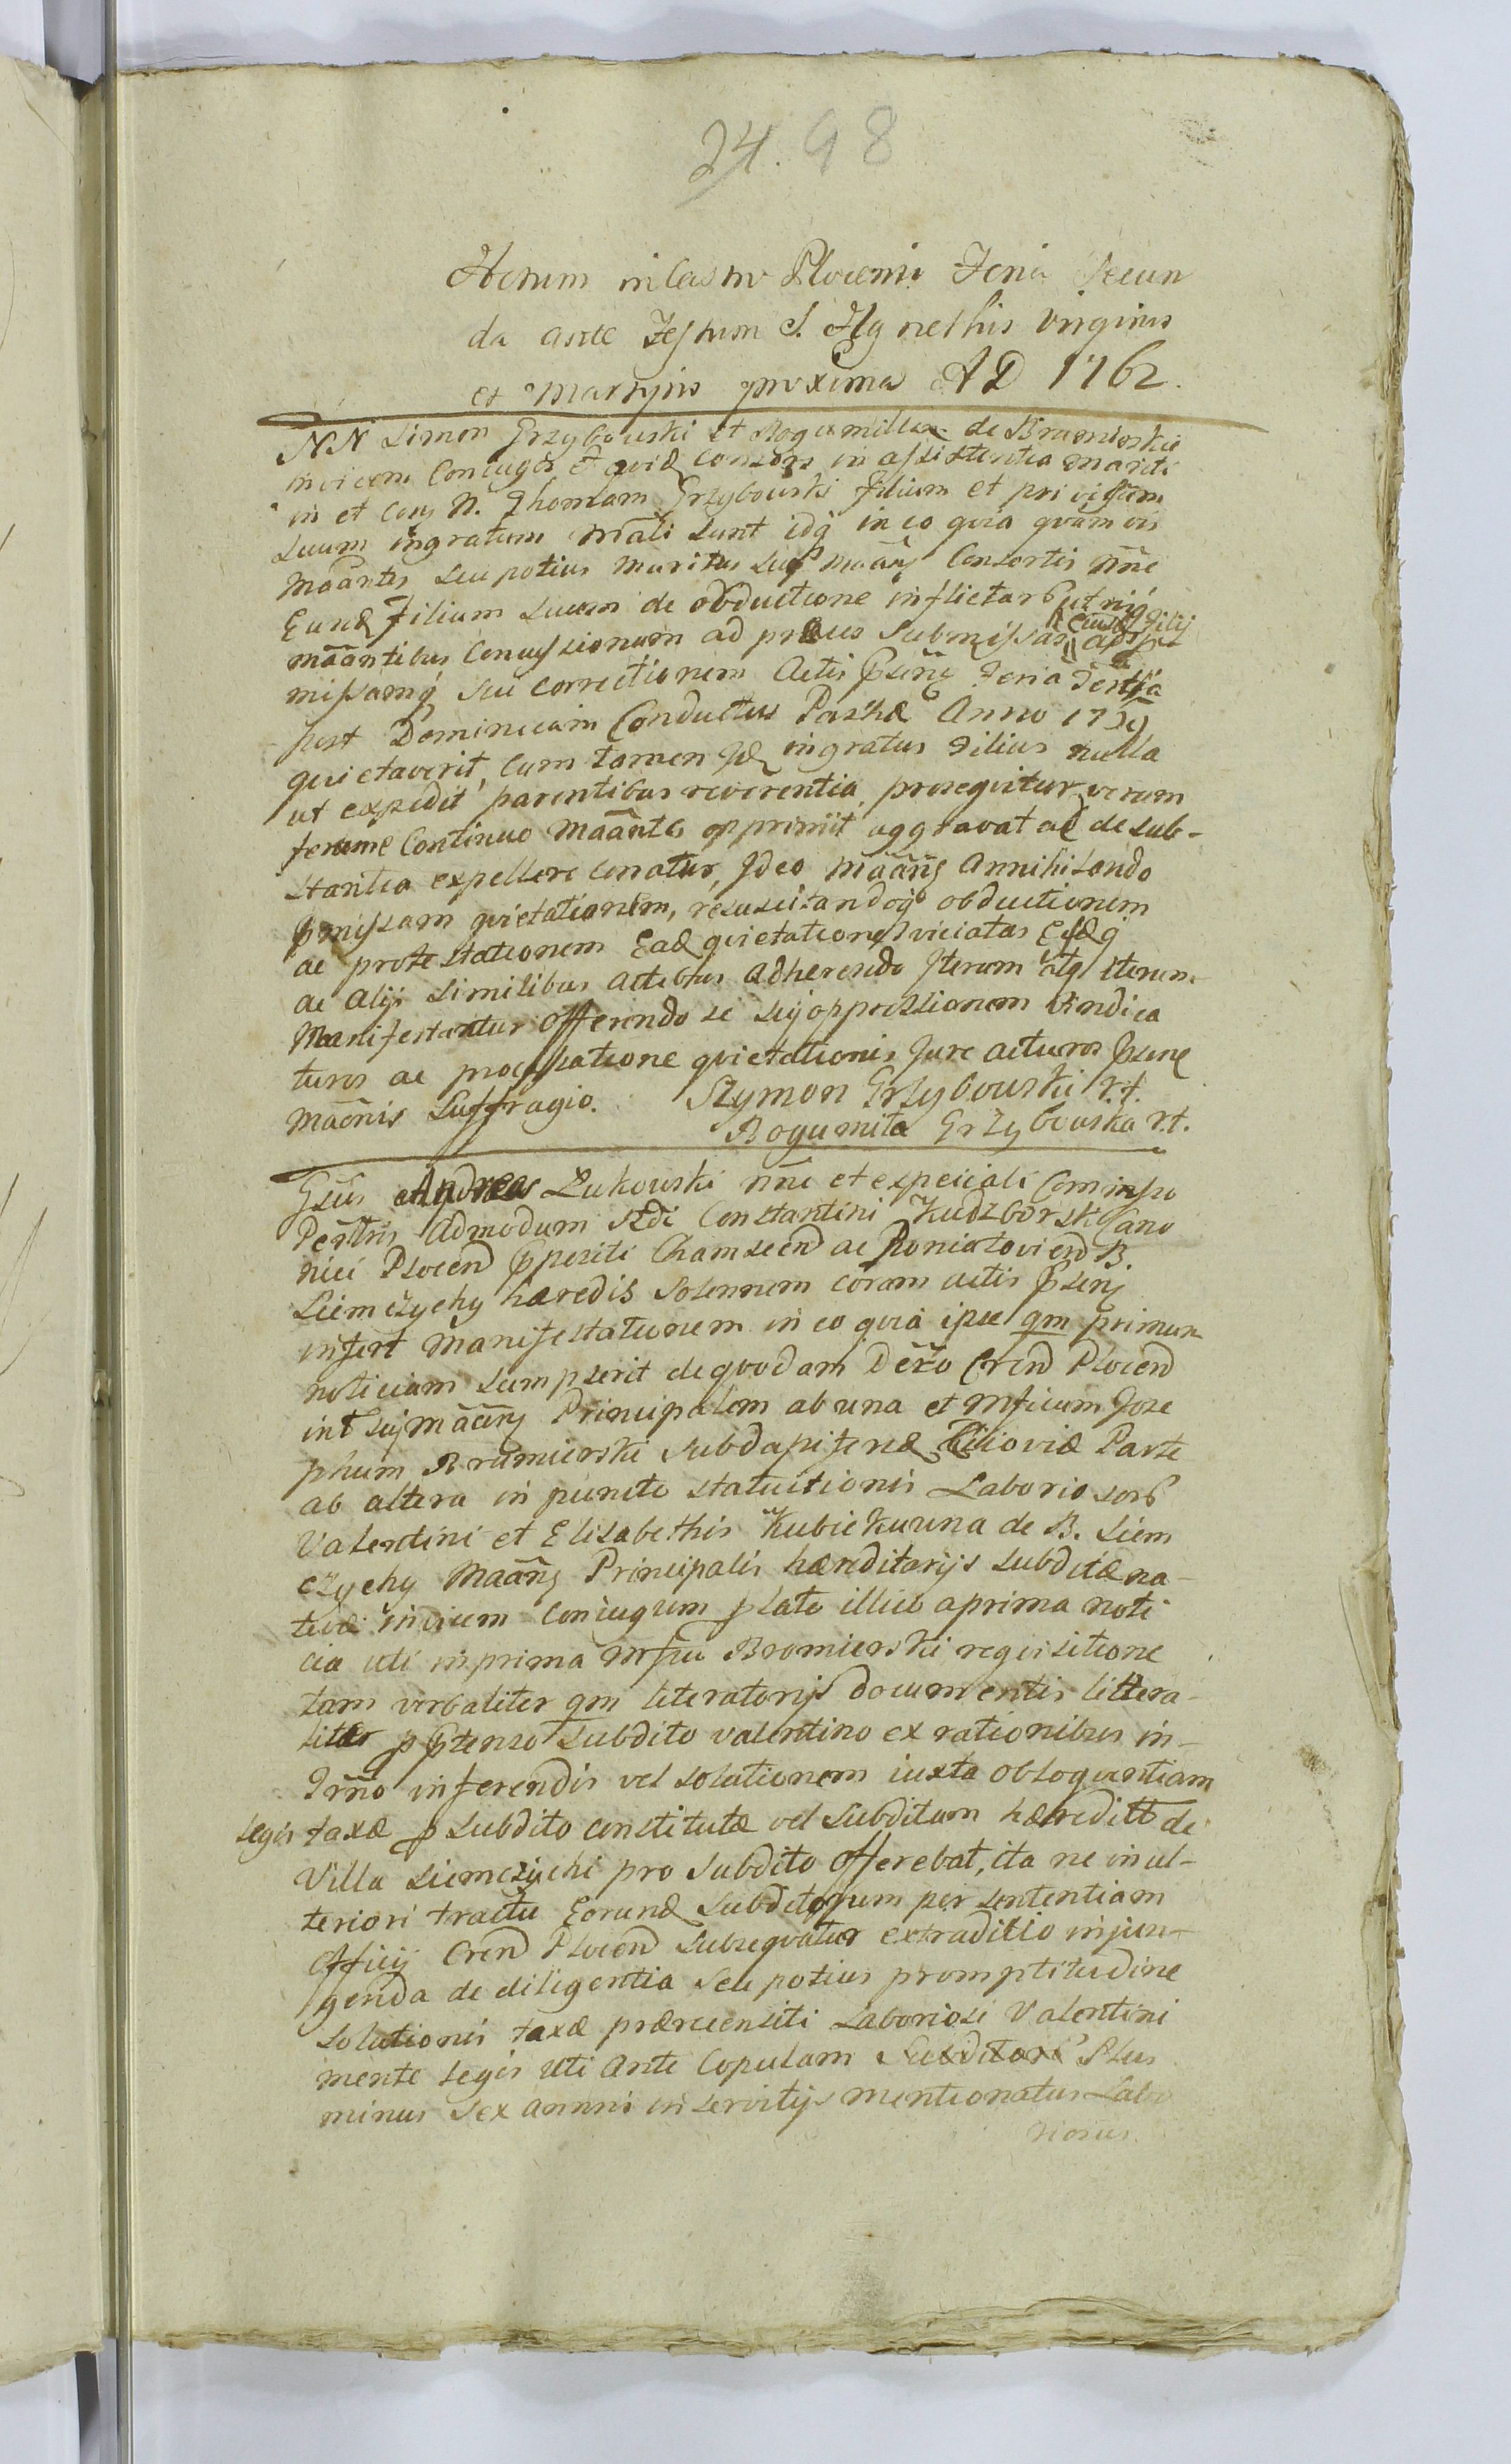 24. 98
Actum in Castro Plocensi Feria Secun
da ante Festum S. Agnethis Virginis
et Martyris proxima AD 1762.
NN Simon Grzybowski et Bogumilla de Bromirskie
invicem Conjuges Eavid consors in assistentia mariti
in et con N. Thomam Grzybowski filium et privignum
suum ingratum mãli sunt idq in eo quia quamvis
Mãantes seu potius maritus suo mãan Consortis nñe
Eund filium suum de obductione inflictar utrisq
mãantibus Concussionum ad preces submissas eiusd filij
missamq sui correctionem Actis psen feria tertia
post Dominicam Conductus Paschæ Anno
quietaverit, cum tamen Jd ingratus filius nulla
ut expedit parentibus reverentia prosequitur verum
ferme Continuo Mãantes opprimit aggravat ac de sub-
stantia expellere conatur, Ideo Mãan Annihilando
pmissam quietationem, resuscitandoq obductionem
ac protestationem Ead quietatione viciatas Eisdq
ac alijs similibus actibus adherendo Iterum Atq iterum
Manifestantur offerendo se suj oppressionem vindica
turos ac pro cassatione quietationis Jure acturos psen
mãonis suffragio. Szymon Grzybowski r.t.
Bogumiła Grzybowska r.t.
Gsus Andreas Łukowski nñe et expeciali Commisso
Pertris Admodum Rdi Constantini Kudzborski Cano
nici Plocen ppositi Chamscen ac Poniatovien B.
Siemczychy hæredis Solennem coram actis psen
infert Manifestationem in eo quia ipse qm primum
noticiam sumpserit de quodam Derto Cren Plocen
int suj mãen Principalem ab una et Mficum Jose
phum Bromierski Subdapiferæ Ciioviæ Parte
ab altera in puncto statuitionis Laboriosor
Valentini et Elisabethis Kubickuwna de B. Siem
czychy Maan Principalis hæreditarijs subditæ na-
tivæ invicem conjugum plato illico a prima noti
cia uti in prima Mfici Bromierski requisitione
tam verbaliter qm literatorijs documentis littera-
liter p ptenso subdito Valentino ex rationibus in-
Trño inferendis vel solutionem iuxta obloquentiam
legis taxæ p subdito constitutæ vel subditum hæredit de
Villa Siemczychi pro subdito offerebat, ita ne in ul-
teriori tractu Eorund subditorum per sententiam
Officij Cren Plocen subsequatur extraditio injun-
genda de diligentia seu potius promptitudine
solutionis taxæ præcensiti Laboriosi Valentini
mente legis uti ante Copulam Subditor Plus
minus sex annis in servitijs mentionatus Labo
riosus